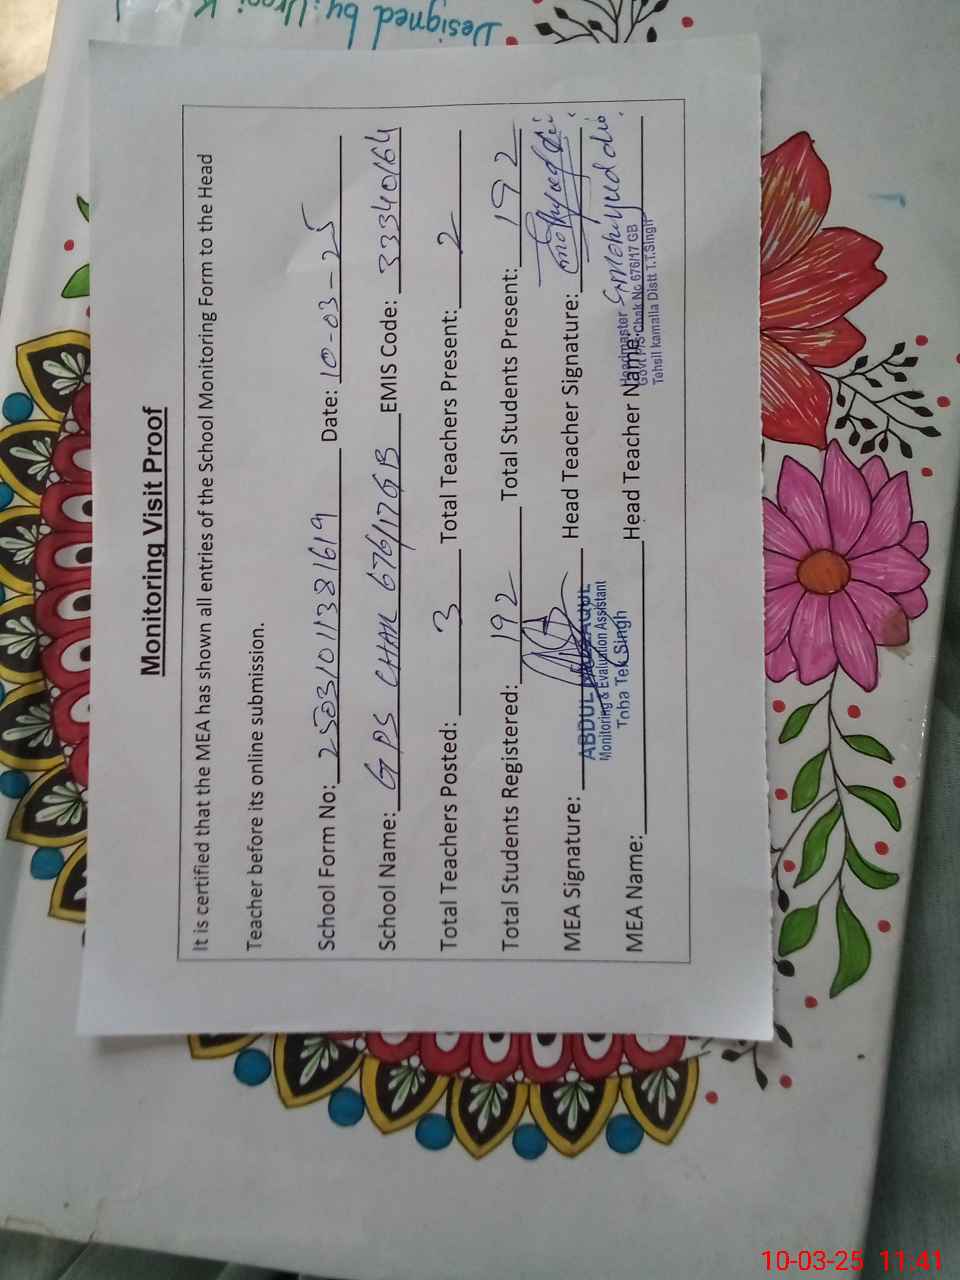 Designed by: Urooj K
Monitoring Visit Proof
It is certified that the MEA has shown all entries of the School Monitoring Form to the Head
Teacher before its online submission.
School Form No: 25031011381619 Date: 10-03-25
School Name: GPS CHAK 676/17GB EMIS Code: 33340164
Total Teachers Posted: 3 Total Teachers Present: 2
Total Students Registered: 192 Total Students Present: 192
MEA Signature: Head Teacher Signature:
ABDUL
Monitoring & Evaluation Assistant
Toba Tek Singh
MEA Name: Head Teacher Name:
Headmaster
Govt P/S Chak No 676/17 GB
Tehsil kamalia Distt T.T.Singh
10-03-25 11:41